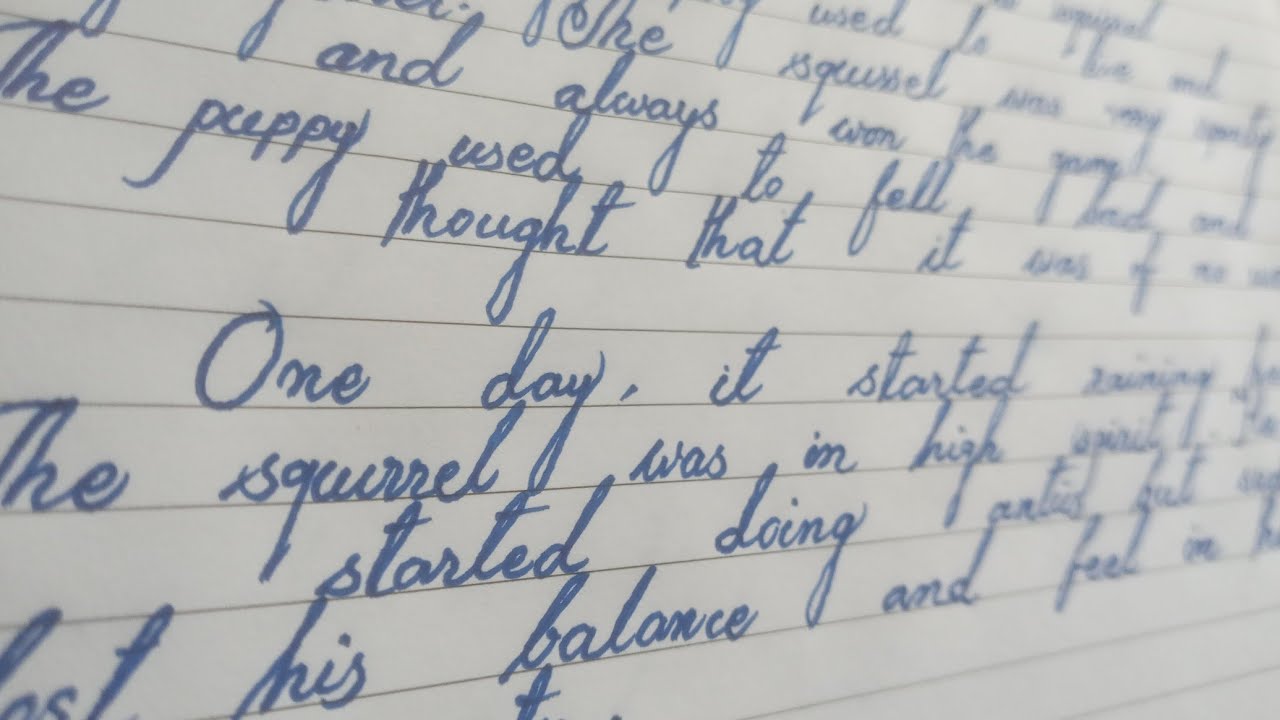 used to
The squirrel was
and always won the game
The puppy used to fell bad and
thought that it was of no
One day, it started raining
The squirrel was in high spirit.
started doing antics but
lost his balance and feel in